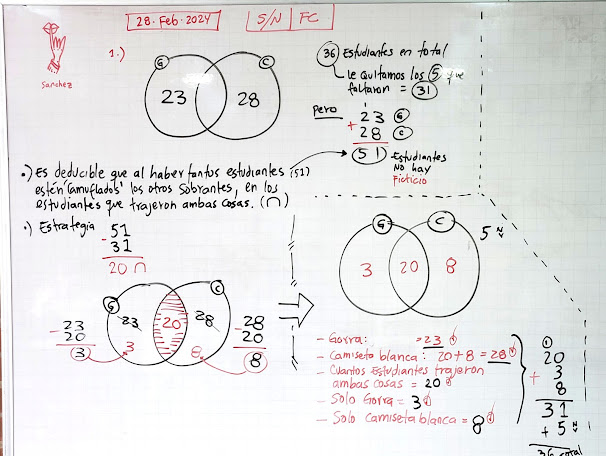 28. Feb. 2024
S/N FC
Sanchez
1.)
G C
23 28
36 Estudiantes en total
Le Quitamos los 5 que
faltaron = 31
pero
23 G
+ 28 C
51 Estudiantes
No hay
Ficticio
.) Es deducible que al haber tantos estudiantes (51)
están 'camuflados' los otros sobrantes, en los
estudiantes que trajeron ambas cosas. (∩)
.) Estrategia
51
- 31
20 ∩
G C
23 20 28
3 8
- 23
20
3
- 28
20
8
G C
3 20 8
5 N
- Gorra: = 23
- Camiseta blanca: 20+8 = 28
- Cuantos Estudiantes trajeron
ambas cosas = 20
- Solo Gorra = 3
- Solo Camiseta blanca = 8
1
20
+ 3
8
31
+ 5 N
36 total